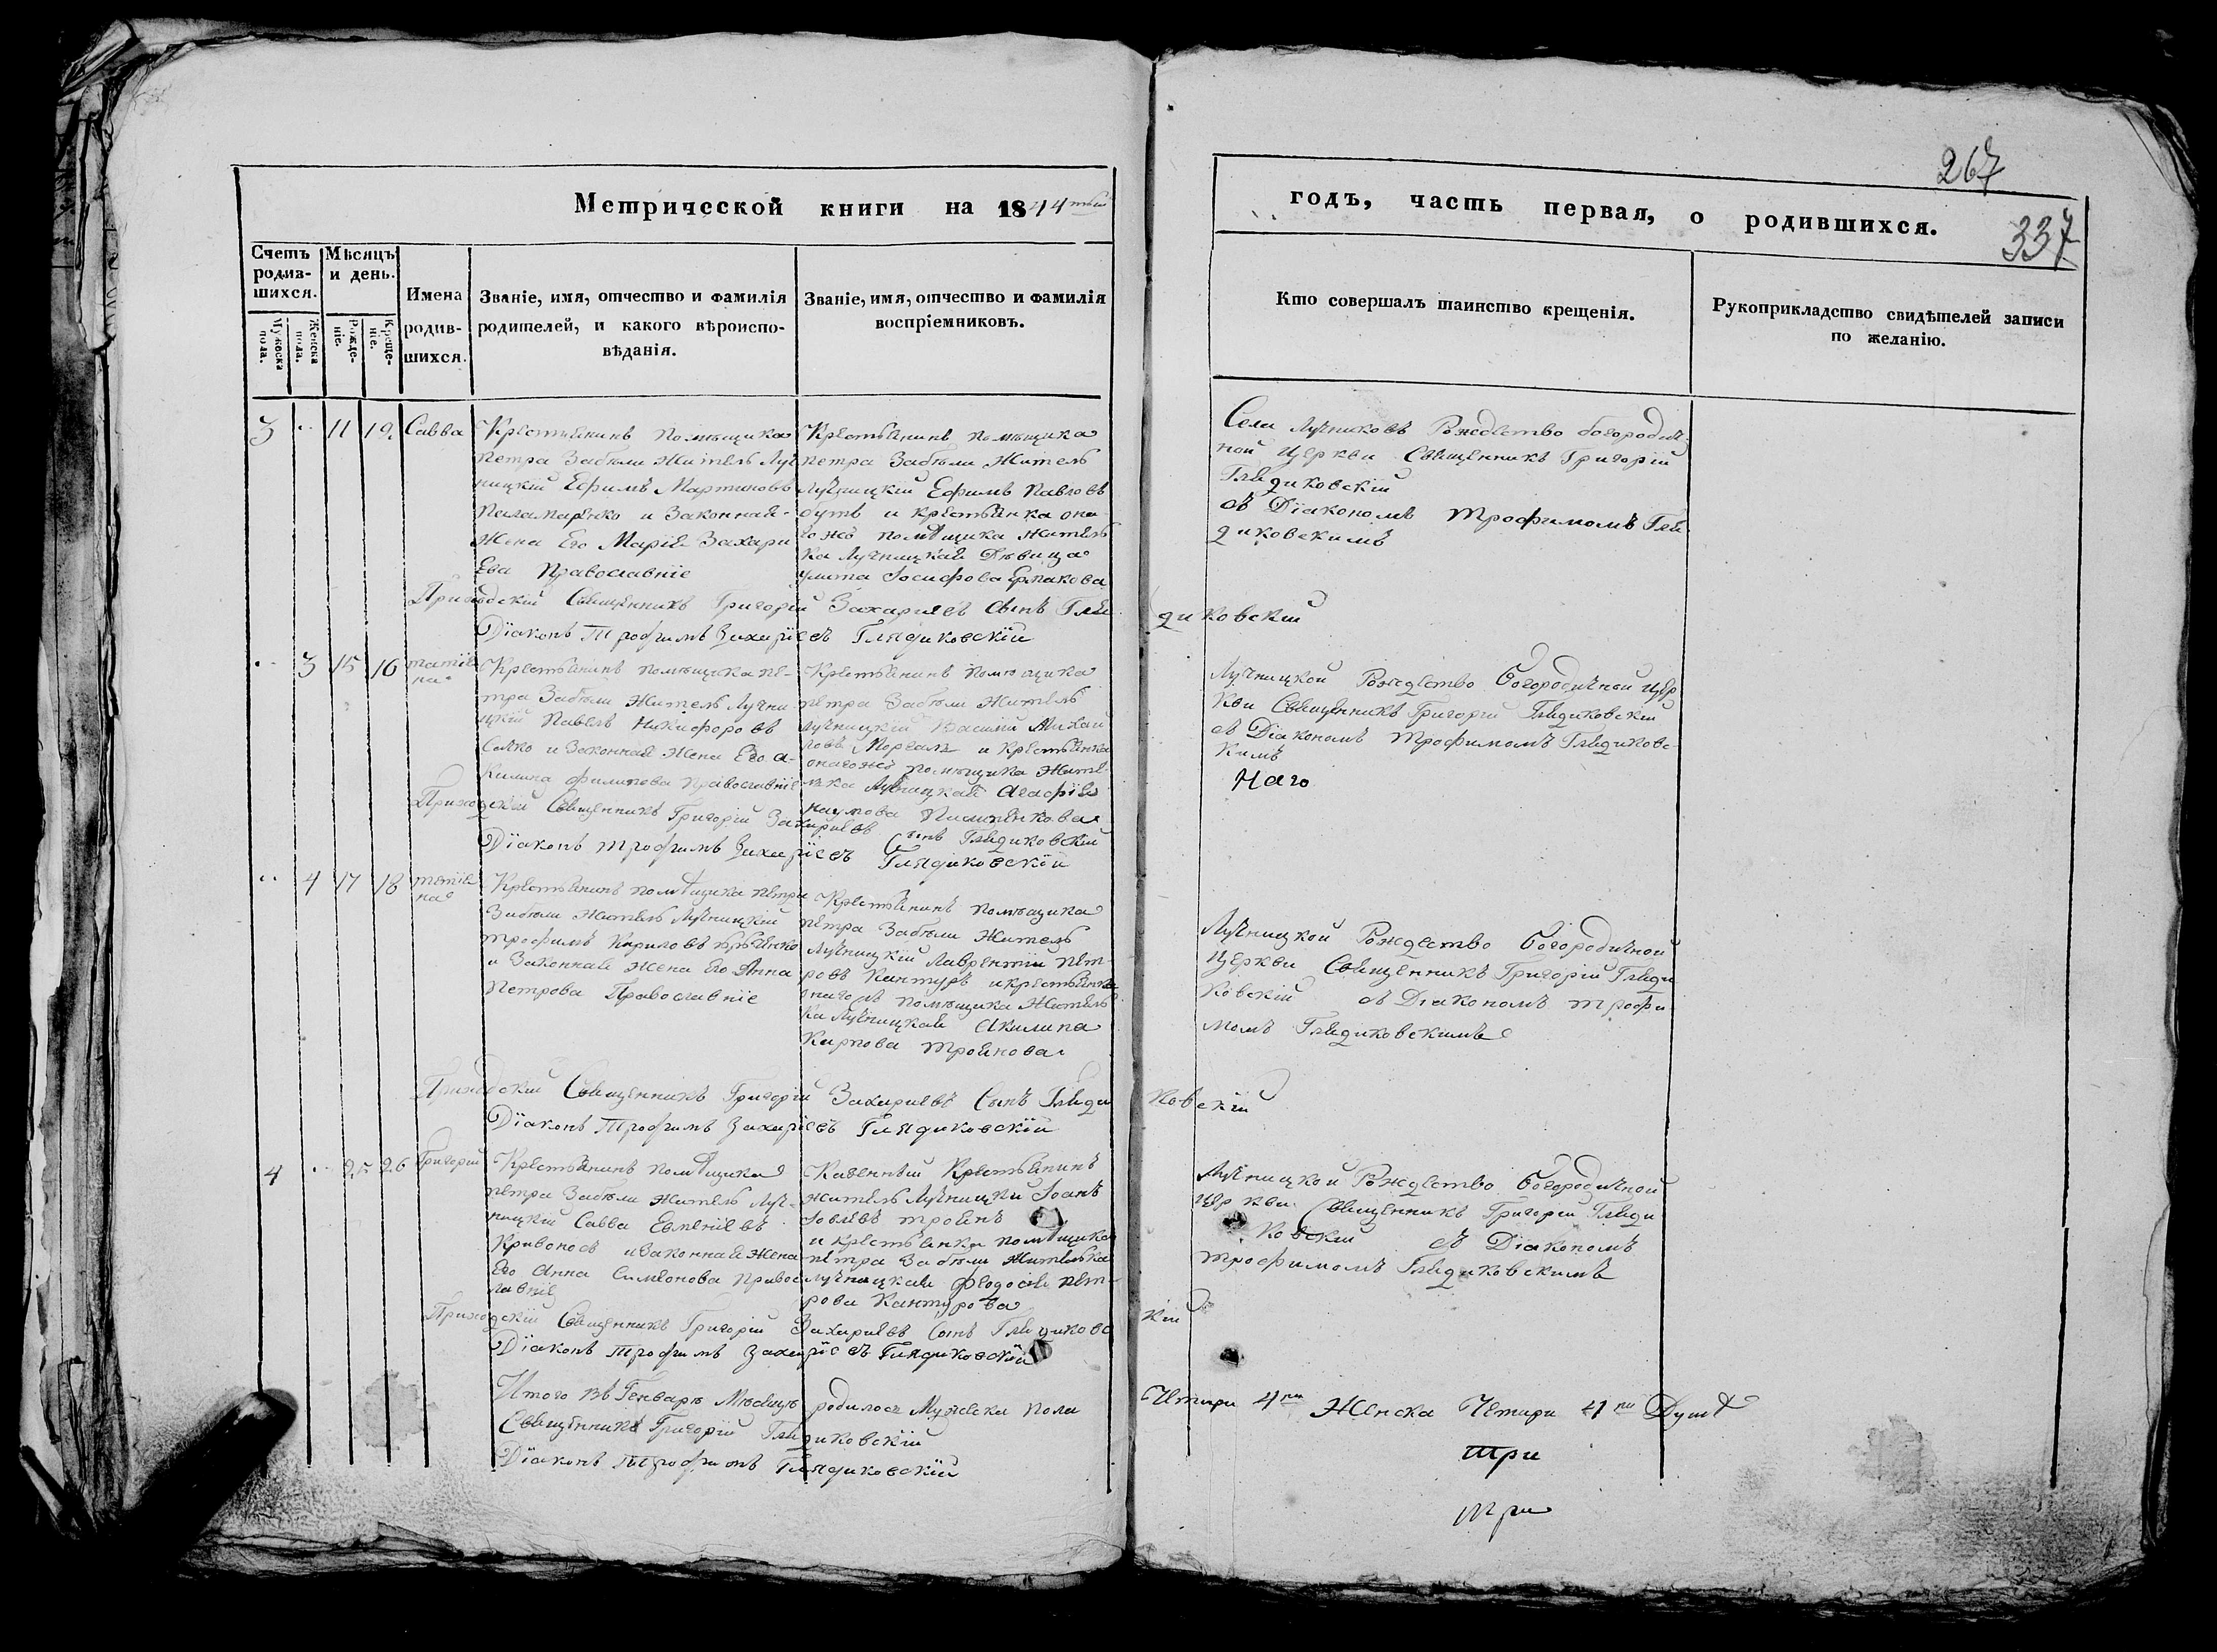 267
Метрической книги на 1844 годъ, часть первая, о родившихся.
337
Счетъ родившихся.
Мужеска пола.
Женска пола.
Мѣсяцъ и день.
Рожденіе.
Крещеніе.
Имена родившихся.
Званіе, имя, отчество и фамилія
родителей, и какого вѣроиспо-
вѣданія.
Званіе, имя, отчество и фамилія
воспріемниковъ.
Кто совершалъ таинство крещенія.
Рукоприкладство свидѣтелей записи
по желанію.
3 11 12 Савва
Крестьянинъ помѣщика
Петра Забѣли житель Луч
ницкій Ефимъ Мартиновъ
Паламаренко и Законная
Жена Его Марія Захари
Ева Православніе
Крестьянинъ помѣщика
Петра Забѣли Житель
Лучницкій Ефимъ Павловъ
и крестьянка она
гожъ помѣщика жител
ка Лучницкая Дѣвица
Улита Іосифова Ермакова
Села Лучниковъ Рождество богородич
ной Церкви Священникъ Григорій
Глядиковскій
съ Діакономъ Трофимомъ Гля
диковскимъ
Приходскій Священникъ Григорій Захаріевъ сынъ Глядиковскій
Діаконъ Трофимъ Захаріевъ Глядиковскій
3 15 16 татіа
на
Крестьянинъ помѣщика пе-
тра Забѣли Житель Лучни
цкій Павелъ Никифоровъ
и Законная Жена Его а-
килина филипова православніе
Крестьянинъ Помѣщика
петра Забѣли Житель
Лучницкій Василій Михай
ловъ и Крестьянка
онагожъ помѣщика Жите-
лка Лучницкая Агафія
наумова
Лучницкой Рождество Богородичной цер
кви Священникъ Григорій Глядиковскій
съ Діакономъ Трофимомъ Глядиковс
кимъ
Приходскій Священникъ Григорій Захаріевъ Сынъ Глядиковскій
Діаконъ Трофимъ Захаріевъ Глядиковскій
4 17 18 татіа
на
Крестьянинъ помѣщика петра
Забѣли житель Лучницкій
Трофимъ Кириловъ
и Законная жена Его Анна
Петрова Православніе
Крестьянинъ помѣщика
петра Забѣли Житель
Лучницкій Лаврентій пет-
ровъ Кантуръ и крестьянка
онагожъ помѣщика Житель
ка Лучницкая Акилина
Карпова Троянова
Лучницкой Рождество Богородичной
Церкви Священникъ Григорій Гляди
ковскій съ Діакономъ Трофи
момъ Глядиковскимъ
Приходскій Священникъ Григорій Захаріевъ Сынъ Глядиковскій
Діаконъ Трофимъ Захаріевъ Глядиковскій
4 25 26 Григорій
Крестьянинъ помѣщика
петра Забѣли житель Луч-
ницкій Савва Евменіевъ
Кривоносъ и Законная Жена
Его Анна Симеонова Правос
лавніе
Казенный Крестьянинъ
житель Лучницкій Іоанъ
Іовлевъ троянъ
и крестьянка помѣщика
петра Забѣли жителька
Лучницкая феодосія пет-
рова Кантурова
Лучницкой Рождество Богородичной
церкви Священникъ Григорій Гляди
ковскій съ Діакономъ
Трофимомъ Глядиковскимъ
Приходскій Священникъ Григорій Захаріевъ Сынъ Глядиковскій
Діаконъ Трофимъ Захаріевъ Глядиковскій
Итого въ Генварѣ Мѣсяцѣ родилось Мужеска пола Четири 4ри Женска Четири 4ри Душѣ
Священникъ Григорій Глядиковскій
три
Діаконъ Трофимъ Глядиковскій
три